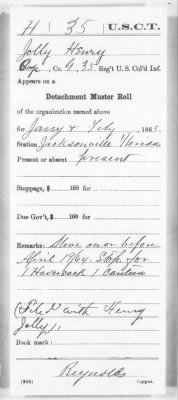 H 35 U.S.C.T.
Jolly Henry
Corp, Co. G, 35 Reg't U.S. Col'd Inf.
Appears on a
Detachment Muster Roll
of the organization named above
for Jany & Feby, 1865.
Station Jacksonville Florida
Present or absent present
Stoppage, $ 100 for
Due Gov't, $ 100 for
Remarks: Slave on or before
April 19/61. Stop for
1 Haversack 1 Canteen
(Filed with Henry
Jolly)
Book mark:
Reynolds
(366) Copyist.